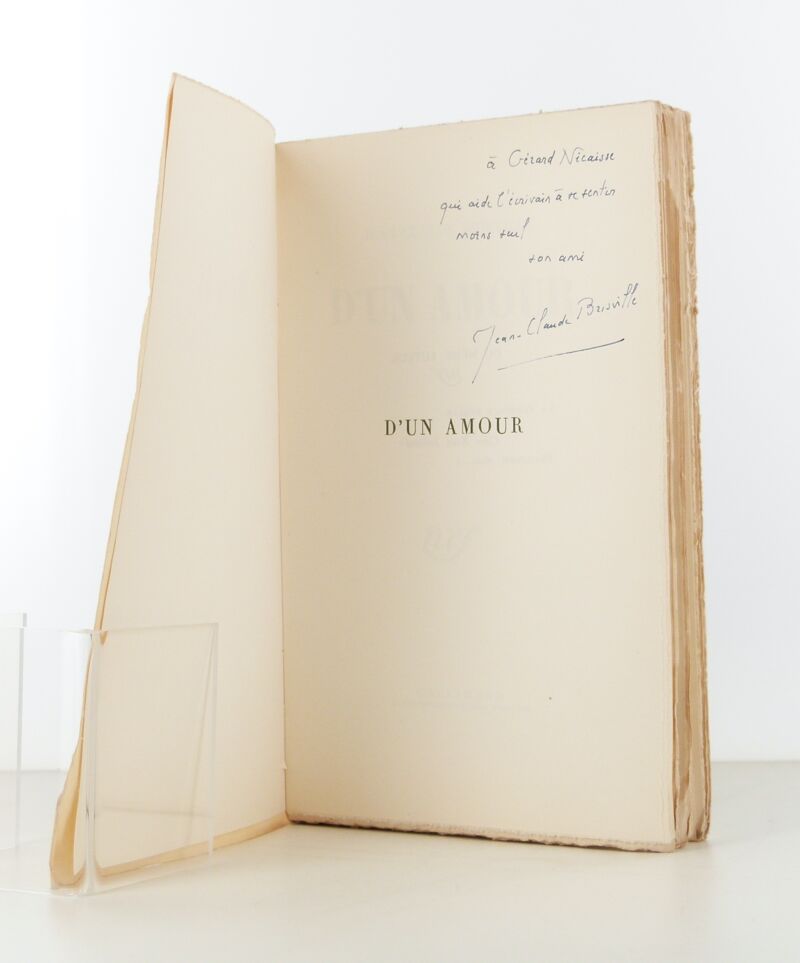 à Gérard Nicaisse
qui aide l'écrivain à se sentir
moins seul
son ami
Jean-Claude Brisville
D'UN AMOUR